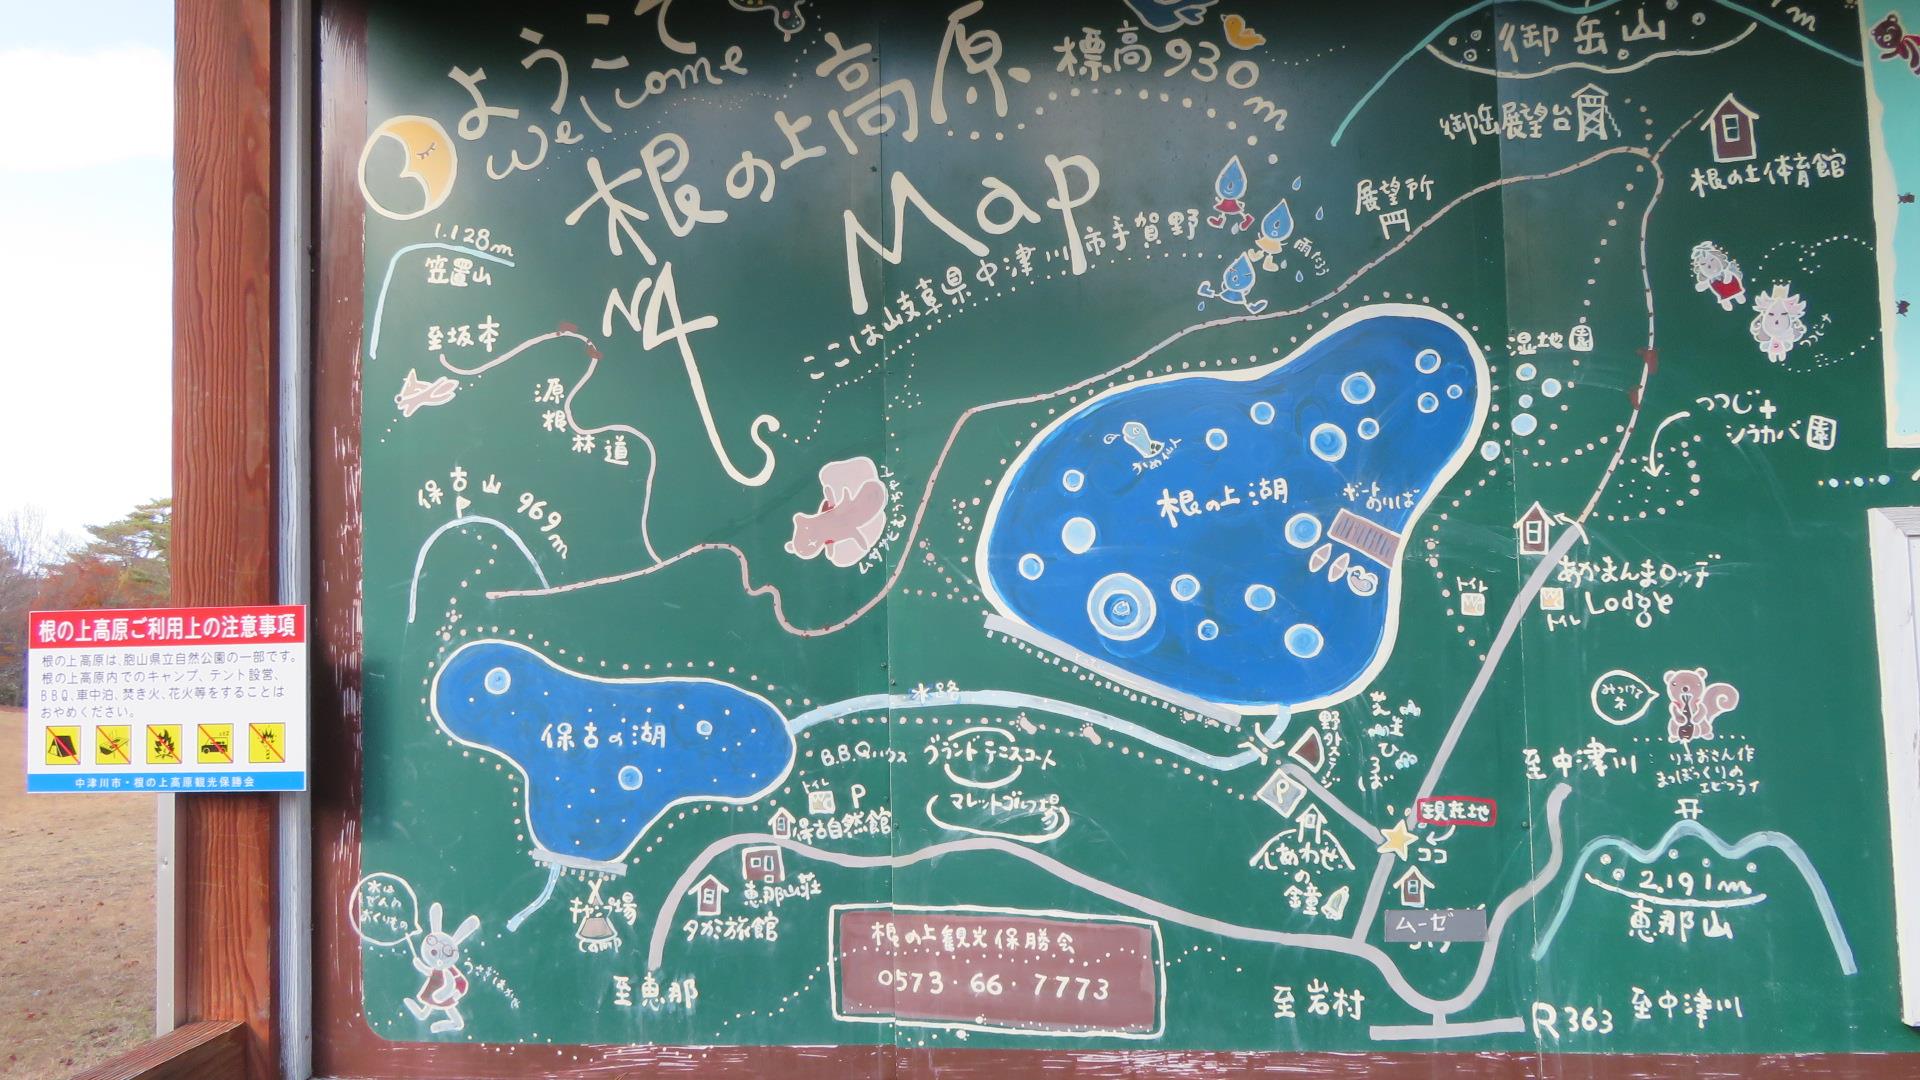 ようこそ
Welcome
根の上高原
標高930m
Map
ここは岐阜県中津川市手賀野
N
1.128m
笠置山
至坂本
源根林道
保古山 969m
ムササビ
御岳山
御岳展望台
根の上体育館
展望所
雨
湿地園
つつじ+
シラカバ園
つつじ
根の上湖
ボート
のりば
あかまんまロッヂ
Lodge
トイレ
トイレ
水路
保古の湖
B.B.Qハウス
グランドテニスコート
マレットゴルフ場
トイレ P
保古自然館
恵那山荘
夕カミ旅館
キャンプ場
camp
至恵那
水は
ぜんぶ
おくりもの
野外ステージ
芝生ひろば
P
しあわせの鐘
現在地
ココ
ムーゼ
みつけてネ
りすおさん作
まつぼっくりの
エビフライ
至中津川
2.191m
恵那山
根の上観光保勝会
0573・66・7773
至岩村
R363
至中津川
根の上高原ご利用上の注意事項
根の上高原は、胞山県立自然公園の一部です。
根の上高原内でのキャンプ、テント設営、
BBQ、車中泊、焚き火、花火等をすることは
おやめください。
中津川市・根の上高原観光保勝会